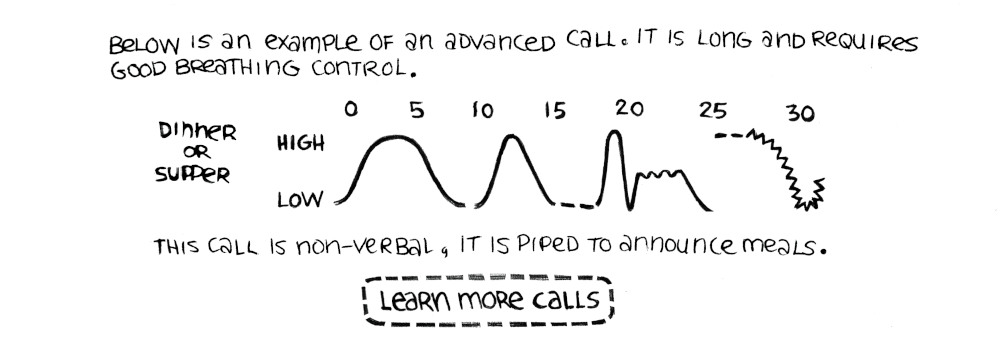 BELOW IS an example OF an advanced call. IT IS LONG and REQUIRES
GOOD BREATHING CONTROL.
0 5 10 15 20 25 30
DINNER
OR
SUPPER
HIGH
LOW
THIS CALL IS non-VERBAL, IT IS PIPED TO announce meals.
Learn more calls